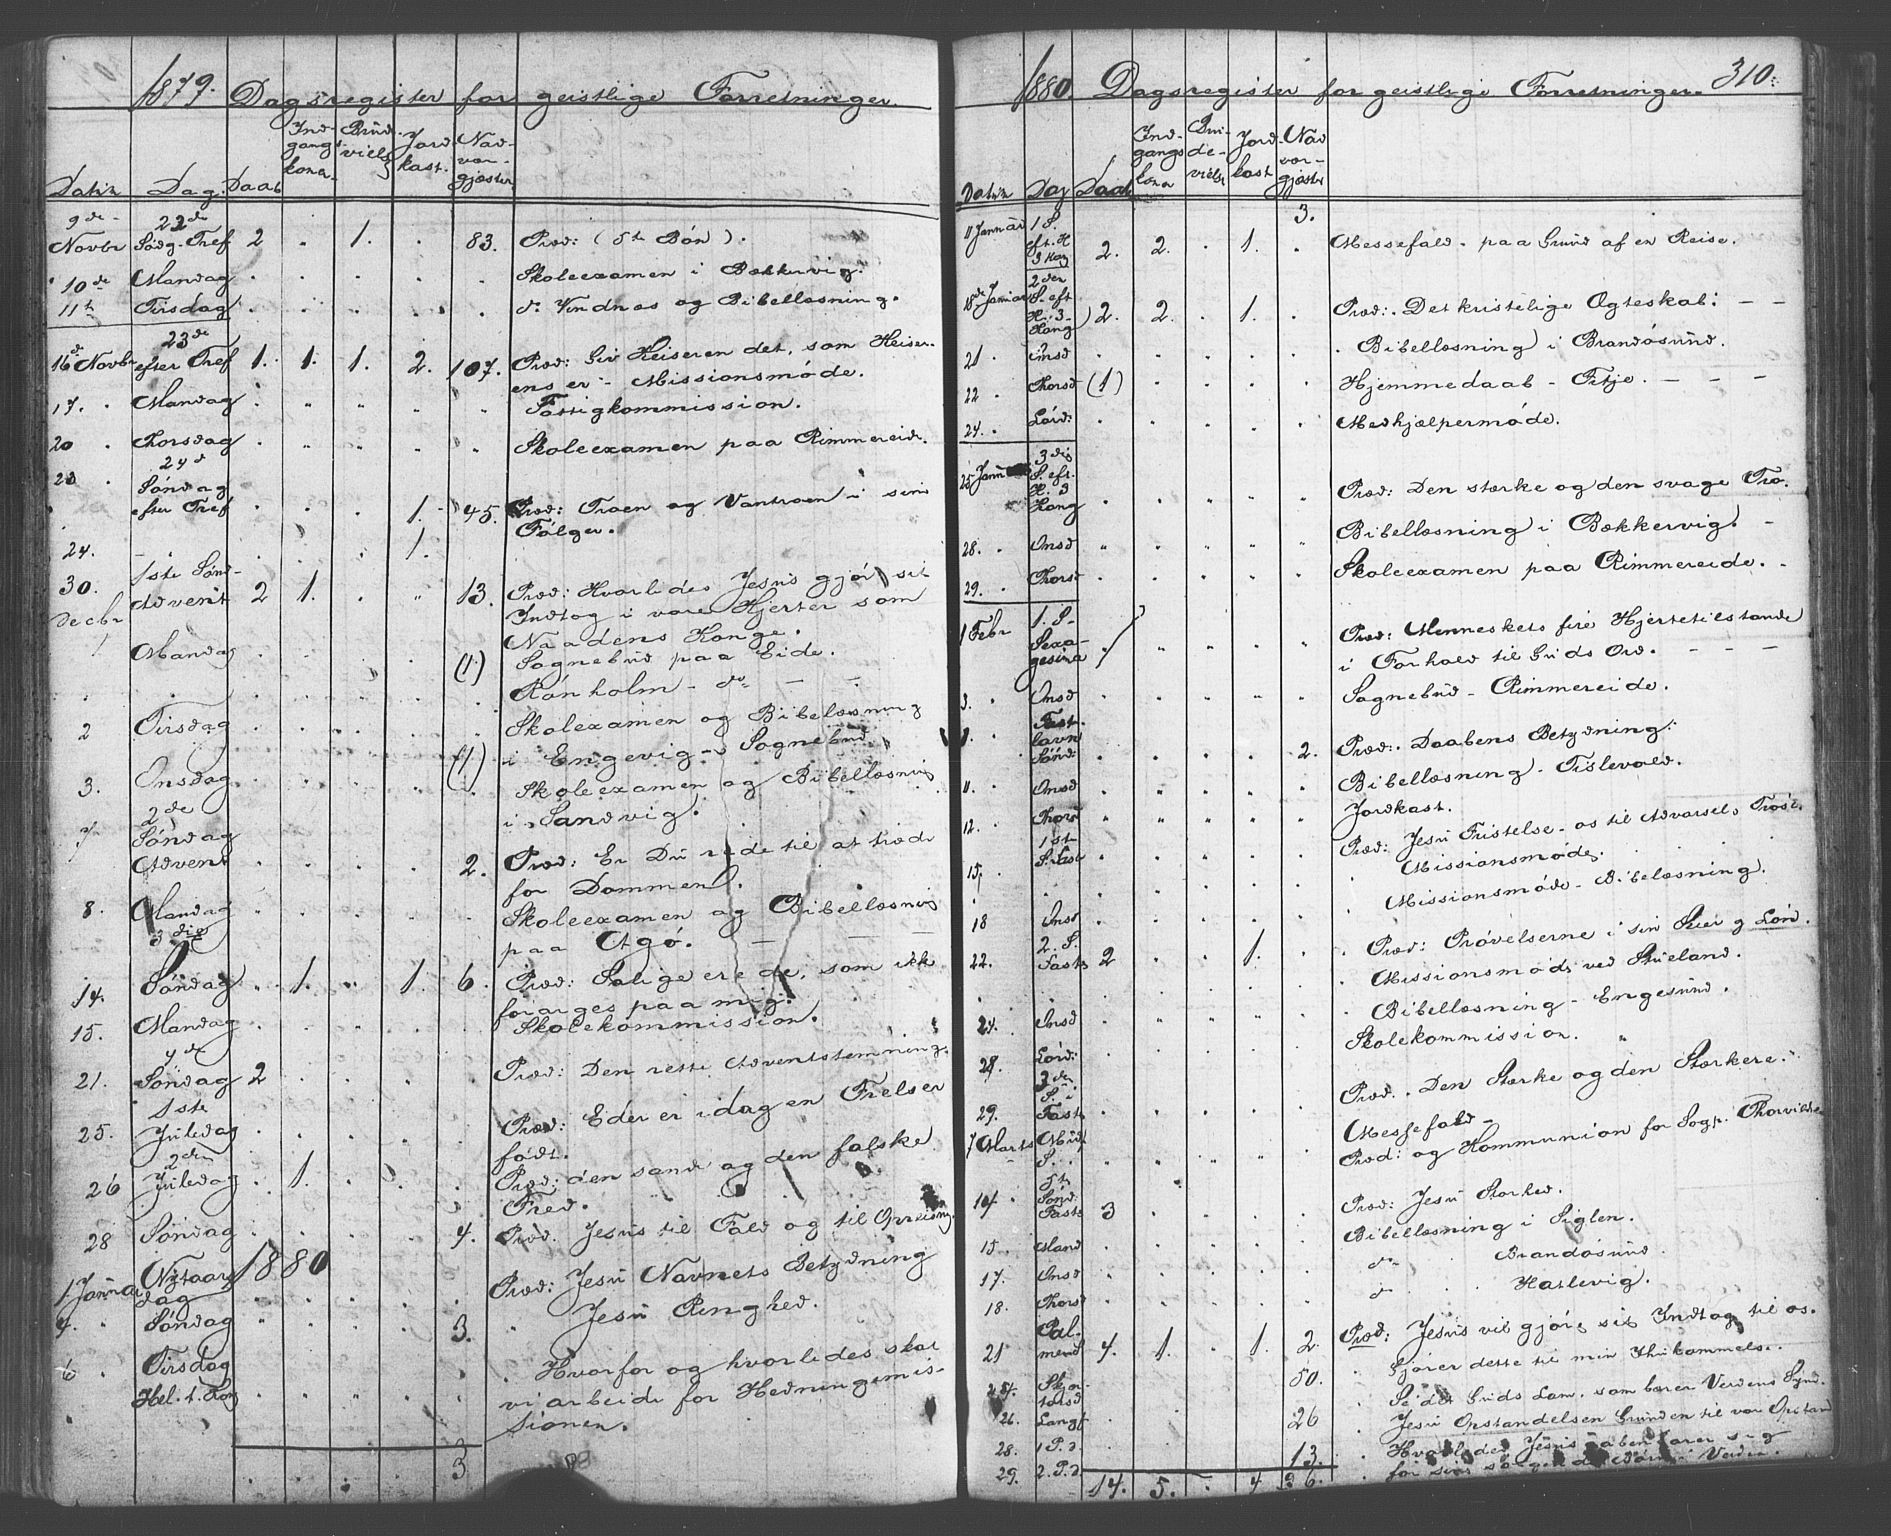 1879. Dagsregister for geistlige Forretninger.
Datum Dag. Daab Indgangskoner Brudviels Jordkast. Nadvorgjæster
9de Novbr 22de Sødg. Tref 2 " 1. . 83. Præd: (5te Bøn).
10de Mandag Skoleexamen i Bækkervig.
11te Tirsdag do Vindnes og Bibellæsning.
16de Novbr 23de efter Tref 1. 1. 1. 2. 107. Præd: Giv Keiseren det, som Keiser-
ens er - Missionsmøde.
17. Mandag Fattigkommission.
20 Thorsdag Skoleexamen paa Rimmereide.
23 24de Søndag efter Tref 1. 45. Præd: Troen og Vantroen i sine
Følger.
24. 1.
30. 1ste Sønd- Advent 2 1. 13. Præd: Hvorledes Jesus gjør sit
Indtog i vore Hjerter som
Naadens Konge.
Decbr 1 Mandag (1.) Sognebud paa Eide.
Rønholm - do - -
2 Tirsdag Skolexamen og Bibelæsning
i Engevig - Sognebud.
3. Onsdag (1) Skoleexamen og Bibellæsning
i Sandvig.
7 2de Søndag Advent 2. Præd: Er Du rede til at træde
for Dommen.
8. Mandag Skoleexamen og Bibellæsning
paa Atgø.
14. 3die Søndag 1. 1. 6. Præd: Salige ere de, som ikke
forarges paa mig.
15. Mandag Skolekommission.
21. 4de Søndag 2 Præd: Den rette Adventstemning.
25. 1ste Juledag Præd: Eder er idag en Frelser
født.
26 2den Juledag 1. Præd: den sande og den falske
Fred.
28 Søndag 4. Præd: Jesus til Fald og til Opreisning
1880
1 Januar Nytaarsdag Præd: Jesu Navnets Betydning
4. Søndag 3. " Jesu Ringhed.
6 Tirsdag Hel. t. Kong " Hvorfor og hvorledes skal
vi arbeide for Hedningemis-
sionen.
3
1880. Dagsregister for geistlige Forretninger. 310.
Datum Dag Daab Indgangskoner Brudevielse Jordkast Nadvorgjæster
11 Januar 1 S. eft. H 3 Kong 2. 2. . 1. 3. Messefald - paa Grund af en Reise.
18de Januar 2den S. eft H. 3 Kong 2. 2. . 1. Præd: Det kristelige Ægteskab: - -
21 Onsd Bibellæsning i Brandøsund.
22 Thorsd (1) Hjemmedaab - Fitje. - - -
24. Lørd: Medhjælpermøde.
25 Januar 3die S. eft. H. 3 Kong Præd: Den stærke og den svage Tro.
28. Onsd Bibellæsning i Bækkervig. -
29. Thorsd Skoleexamen paa Rimmereide. -
1 Febr 1. S- Sexagesima Præd: Menneskets fire Hjertetilstande
i Forhold til Guds Ord. - - -
3. Onsd Sognebud - Rimmereide.
Fastelavn Sønd: 2. Præd: Daabens Betydning:
11. Onsd Bibellæsning - Tislevold.
12. Thorsd Jordkast.
15. 1st S. Fast Præd: Jesu Fristelse - os til Advarsel, Trøst.
Missionsmøde.
18 Onsd Missionsmøde - Bibelæsning.
22. 2. S. Faste 2 1. Præd: Prøvelserne i sin Seier og Løn.
Missionsmøde ved Stueland.
24. Onsd Bibellæsning - Engesund.
28. Lørd: Skolekommission.
29. 3den S. i Faste Præd. Den Stærke og den Stærkere.
Messefald -
7 Marts Midf. S. Præd: og Kommunion for Sogp. Thorvildsen
14. 5te Sønd: Faste 3 Præd: Jesu Storhed.
15. Mand Bibellæsning i Siglen.
17. Onsd do Brandøsund.
18. Thorsd do Hatlevig.
21 Palmesønd 4. 1. 1. 2. Præd: Jesus vil gjøre sit Indtog til os.
25. Skjærtorsd 50. Gjører dette til min Ihukommelse.
26. Langf 26 Se det Guds Lam, som bærer Verdens Synd.
28. 1 P.d. 13. Jesu Opstandelsen Grunden til vor Opstand
29. 2. P.d. Hvorledes Jesus aabenbarer sig
for sine Børn i Verden.
14. 5. . 4 36.